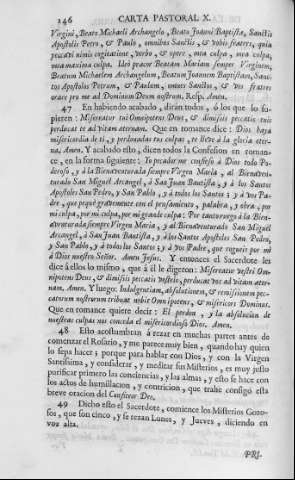 146 CARTA PASTORAL X.
Virgini, Beato Michaeli Archangelo, Beato Joanni Baptistæ, Sanctis
Apostolis Petro, & Paulo, omnibus Sanctis, & vobis fratres, quia
peccavi nimis cogitatione, verbo, & opere, mea culpa, mea culpa,
mea maxima culpa. Ideò precor Beatam Mariam semper Virginem,
Beatum Michaelem Archangelum, Beatum Joannem Baptistam, Sanc-
tos Apostolos Petrum, & Paulum, omnes Sanctos, & vos fratres
orare pro me ad Dominum Deum nostrum. Resp. Amen.
47 En habiendo acabado, dirán todos, ó los que lo su-
pieren: Misereatur tui Omnipotens Deus, & dimissis peccatis tuis
perducat te ad vitam æternam. Que en romance dice: Dios haya
misericordia de ti, y perdonados tus culpas, te lleve á la gloria eter-
na, Amen. Y acabado esto, dicen todos la Confesion en roman-
ce, en la forma siguiente: Yo pecador me confieso á Dios todo Po-
deroso, y á la Bienaventurada siempre Virgen Maria, al Bienaven-
turado San Miguél Arcangel, á San Juan Bautista, y á los Santos
Apostoles San Pedro, y San Pablo, y á todos los Santos; y á vos Pa-
dre, que pequé gravemente con el pensamiento, palabra, y obra, por
mi culpa, por mi culpa, por mi grande culpa: Por tanto ruego á la Bien-
aventurada siempre Virgen Maria, y al Bienaventurado San Miguél
Arcangel, á San Juan Bautista, y á los Santos Apostoles San Pedro,
y San Pablo, y á todos los Santos; y á vos Padre, que rogueis por mi
á Dios nuestro Señor. Amen Jesus. Y entonces el Sacerdote les
dice á ellos lo mismo, que á él le digeron: Misereatur vestri Om-
nipotens Deus, & dimissis peccatis vestris, perducat vos ad vitam æter-
nam. Amen. Y luego: Indulgentiam, absolutionem, & remissionem pec-
catorum nostrorum tribuat nobis Omnipotens, & misericors Dominus.
Que en romance quiere decir: El perdon, y la absolucion de
nuestras culpas nos conceda el misericordioso Dios. Amen.
48 Esto acostumbran á rezar en muchas partes antes de
comenzar el Rosario, y me parece muy bien, quando hay quien
lo sepa hacer; porque para hablar con Dios, y con la Virgen
Santisima, y considerar, y meditar sus Misterios, es muy justo
purificar primero las conciencias, y las almas, y esto se hace con
los actos de humillacion, y contricion, que trahe consigo esta
breve oracion del Confiteor Deo.
49 Dicho esto el Sacerdote, comience los Misterios Gozo-
sos, que son cinco, y se rezan Lunes, y Jueves, diciendo en
voz alta.
PRI-